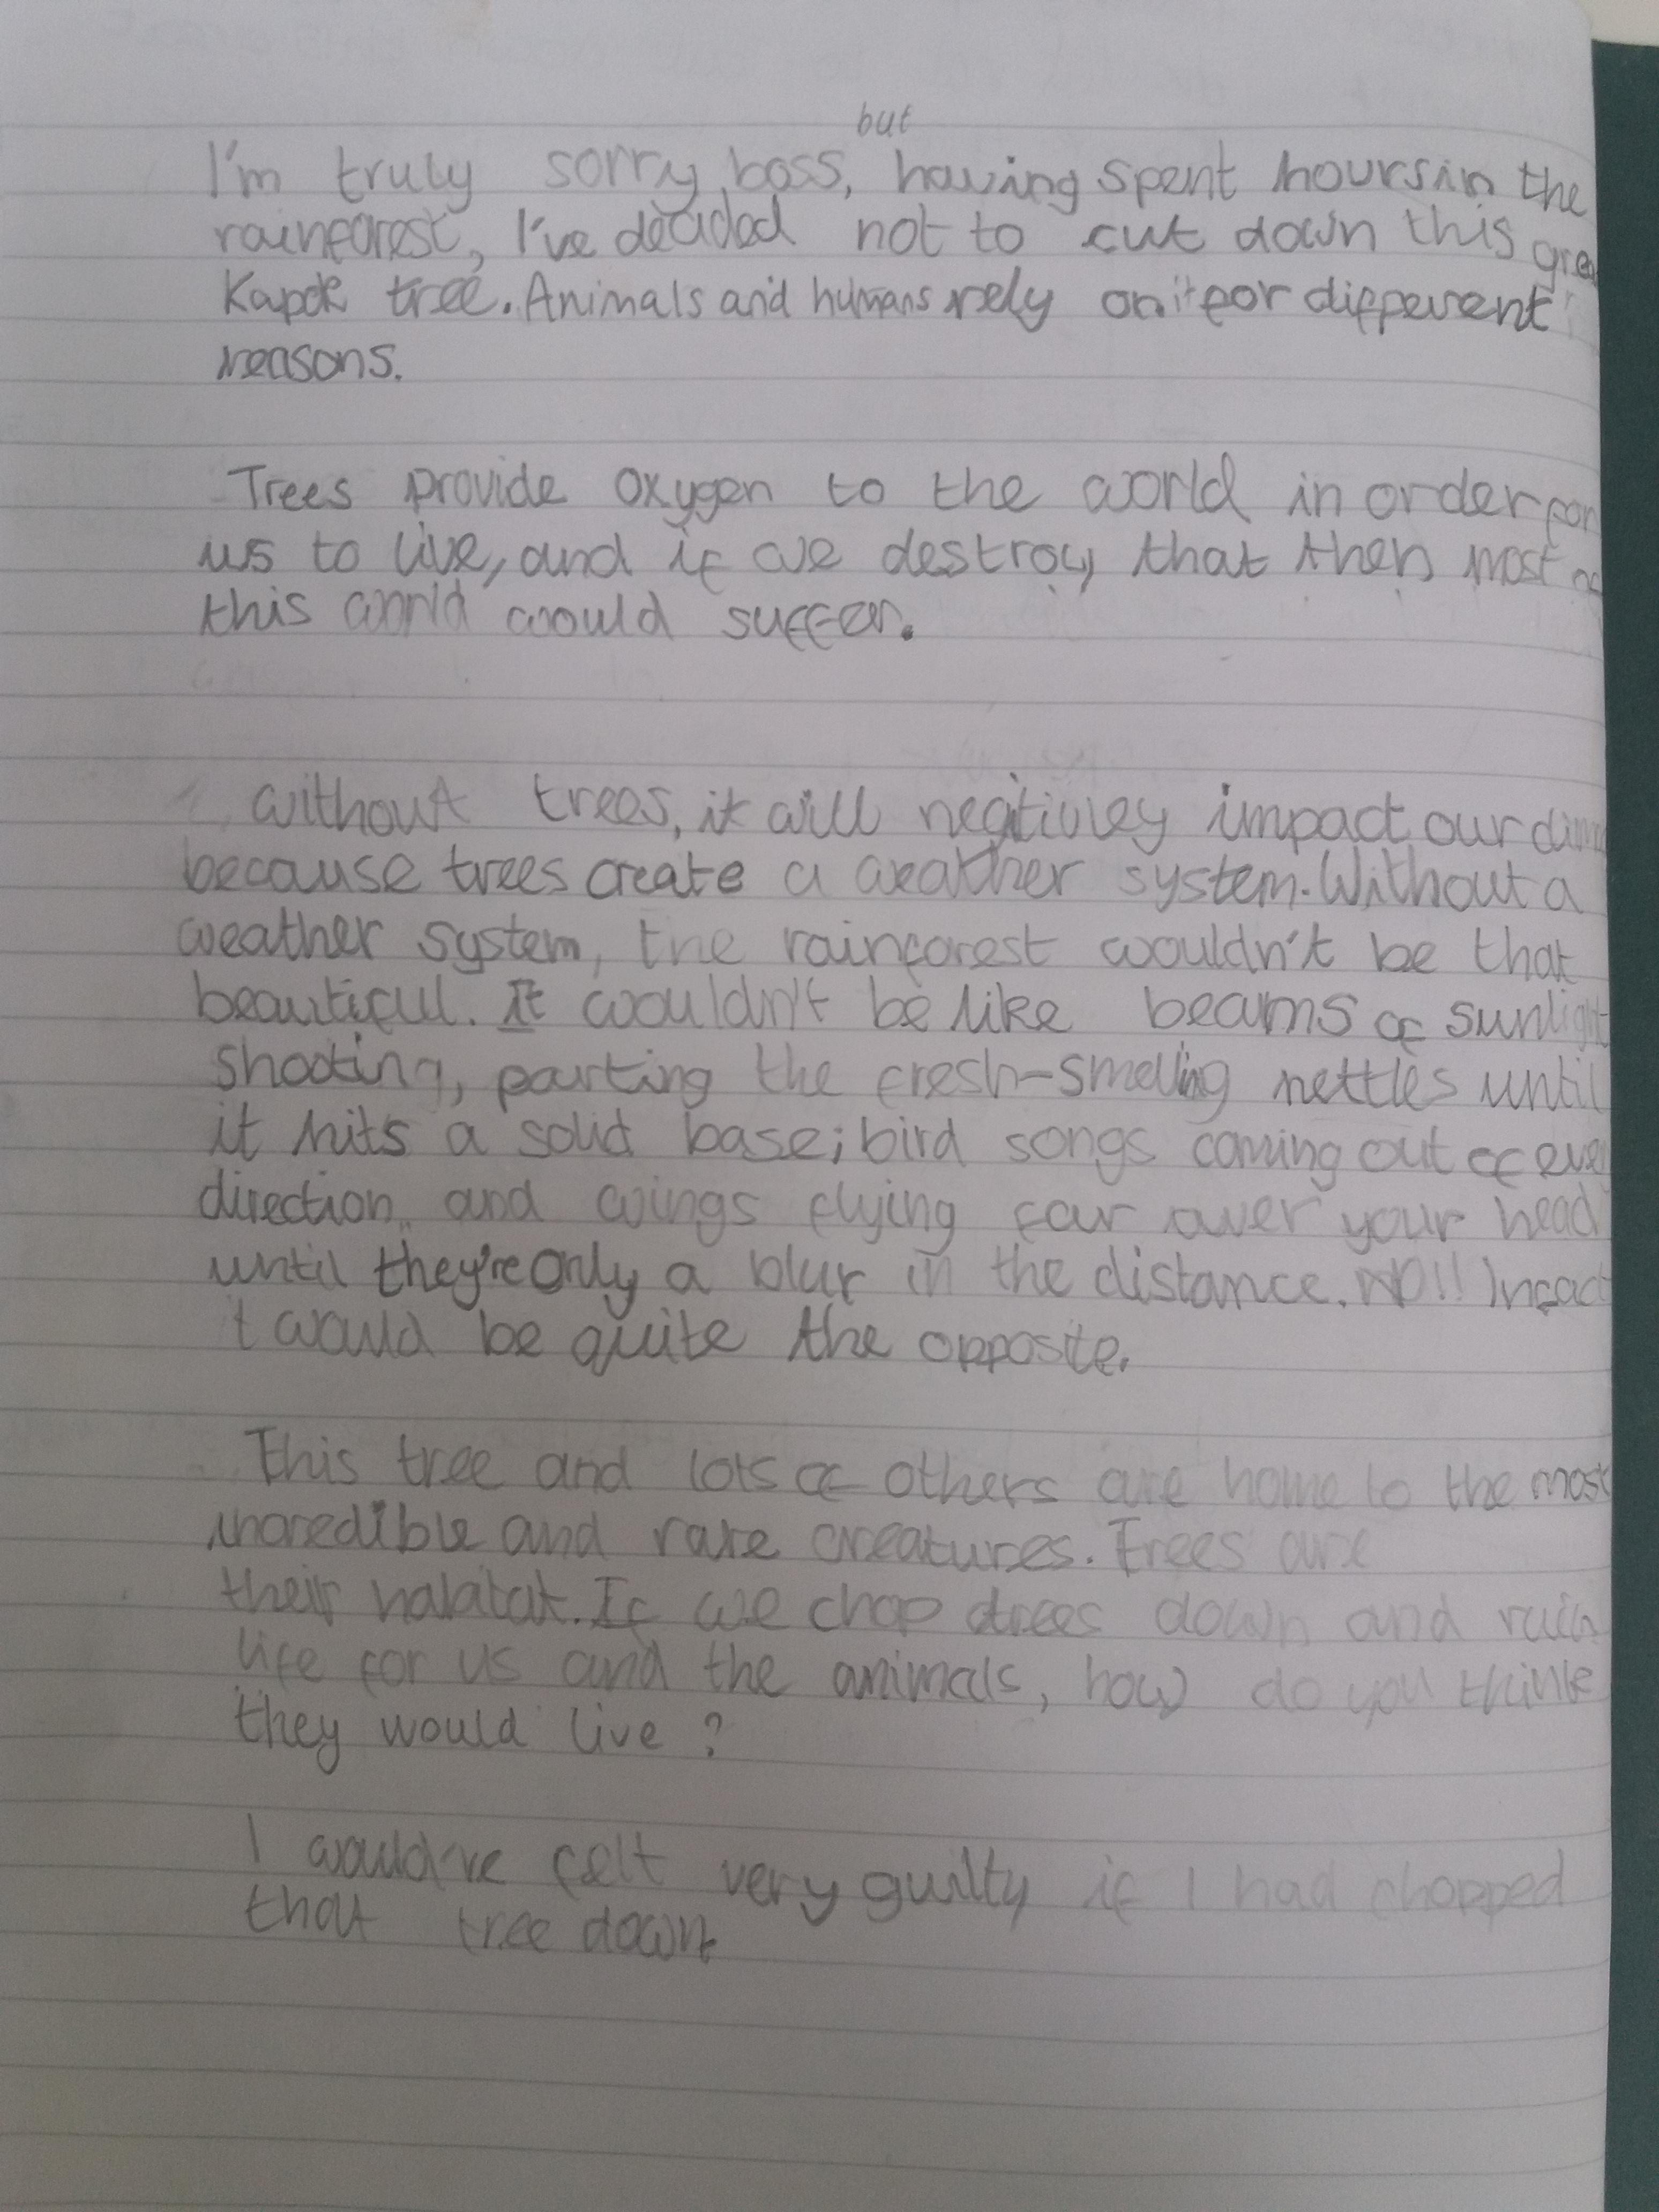 but
I'm truly sorry, boss, having spent hours in the
rainforest, I've decided not to cut down this
Kapok tree. Animals and humans rely on it for different
reasons.
Trees provide oxygen to the world in order for
us to live, and if we destroy that then most of
this world would suffer.
Without trees, it will negitivley impact our
because trees create a weather system. Without a
weather system, the rainforest wouldn't be that
beautiful. It wouldn't be like beams of sunlight
shooting, parting the fresh-smelling nettles until
it hits a solid base; bird songs coming out of
direction and wings flying far over your head
until they're only a blur in the distance. NO!! Infact
it would be quite the opposite.
This tree and lots of others are home to the most
incredible and rare creatures. Trees are
their habitat. If we chop trees down and ruin
life for us and the animals, how do you think
they would live?
I would've felt very guilty if I had chopped
that tree down